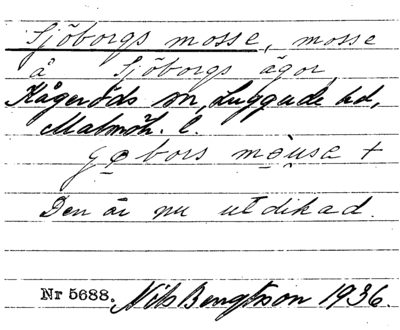 Sjöborgs mosse, mosse
å Sjöborgs ägor,
Kågeröds sn, Luggude hd,
Malmöh. l.
Den är nu utdikad.
Nr 5688. Nils Bengtsson 1936.